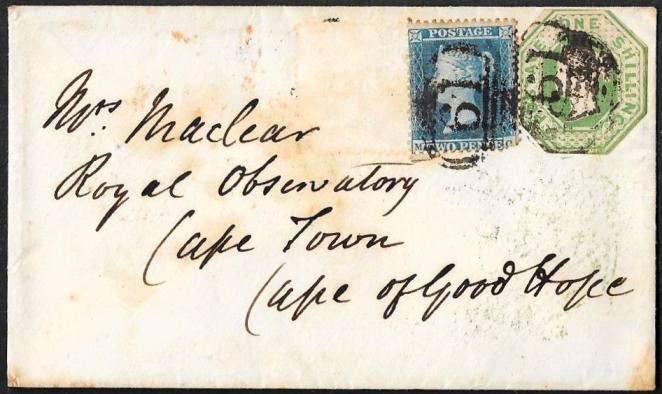 POSTAGE
TWO PENCE
ONE SHILLING
Mrs. Maclear
Royal Observatory
Cape Town
Cape of Good Hope